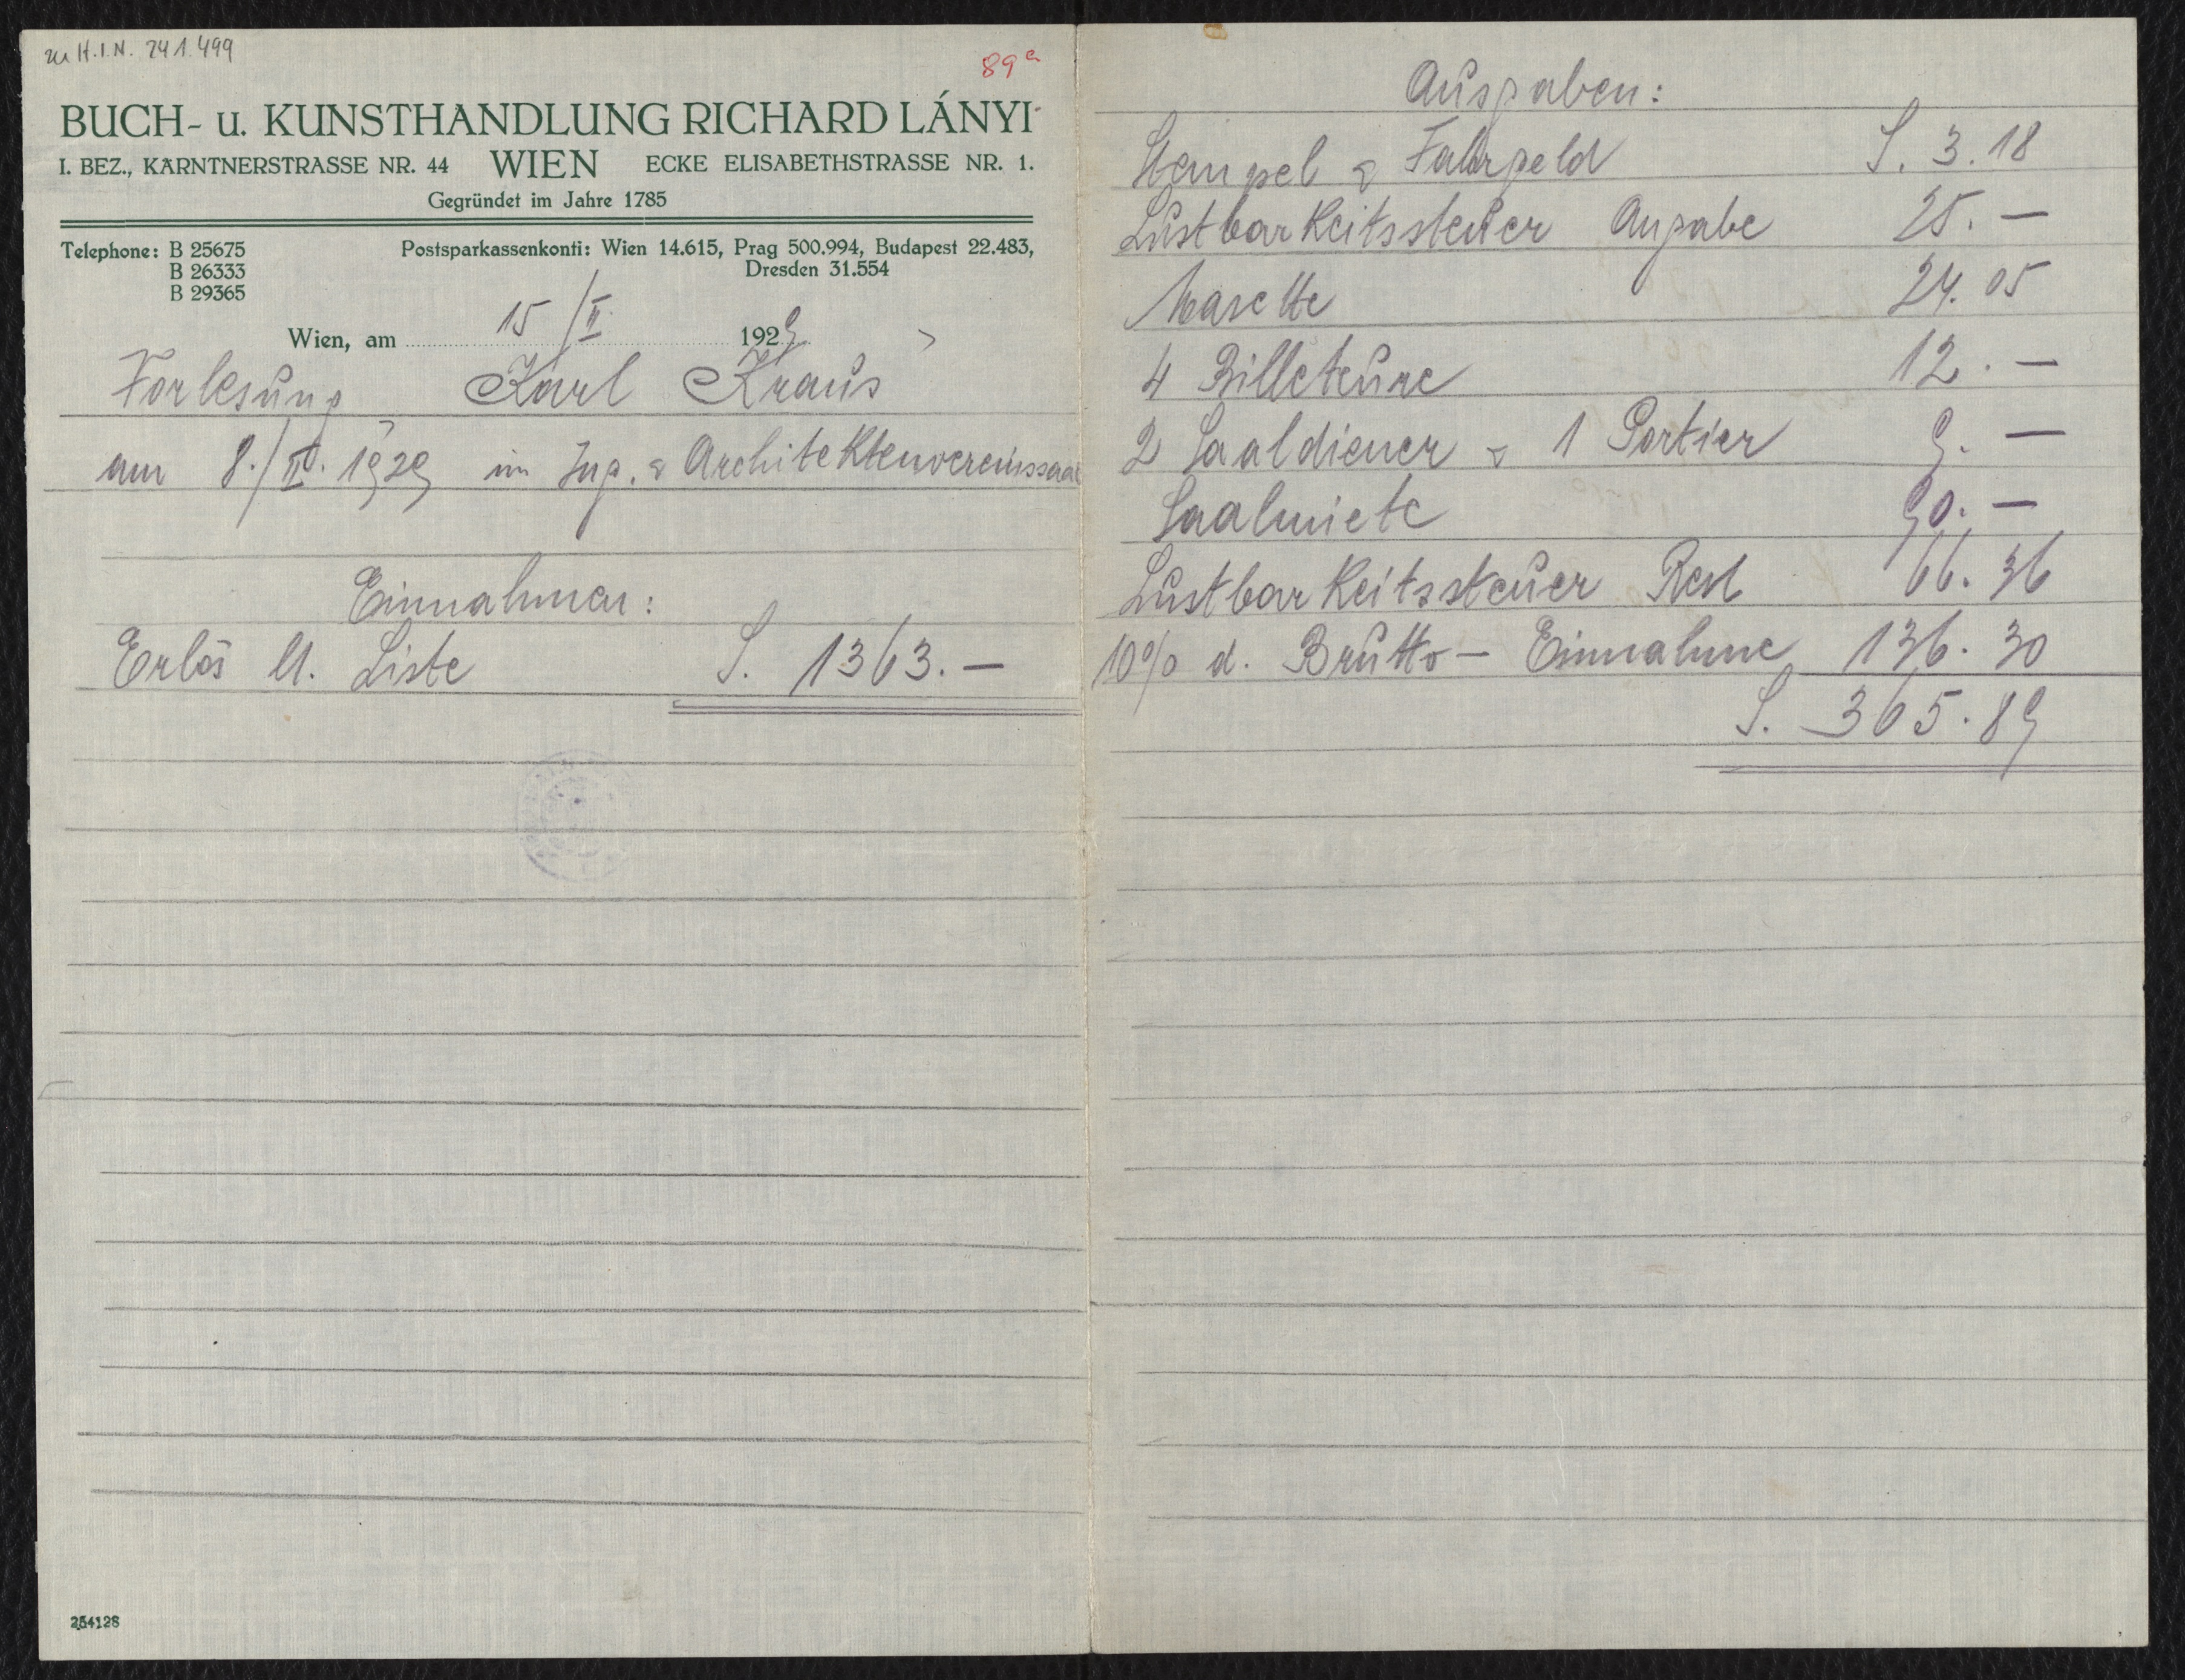 zu H.I.N. 241.499
89a
BUCH- u. KUNSTHANDLUNG RICHARD LÁNYI
I. BEZ., KÄRNTNERSTRASSE NR. 44 WIEN ECKE ELISABETHSTRASSE NR. 1.
Gegründet im Jahre 1785
Telephone: B 25675
B 26333
B 29365
Postsparkassenkonti: Wien 14.615, Prag 500.994, Budapest 22.483,
Dresden 31.554
Wien, am 15/II. 1929.
Vorlesung Karl Kraus
am 8./II. 1929 im Ing. & Architektenvereinssaal
Einnahmen:
Erlös lt. Liste S. 1363.—
254128
Ausgaben:
Stempel & Fahrgeld S. 3.18
Lustbarkeitssteuer Angabe 25.—
Marette 24.05
4 Billeteure 12.—
2 Saaldiener & 1 Portier 9.—
Saalmiete 90.—
Lustbarkeitssteuer Rest 66.36
10% d. Brutto-Einnahme 136.30
S. 365.89